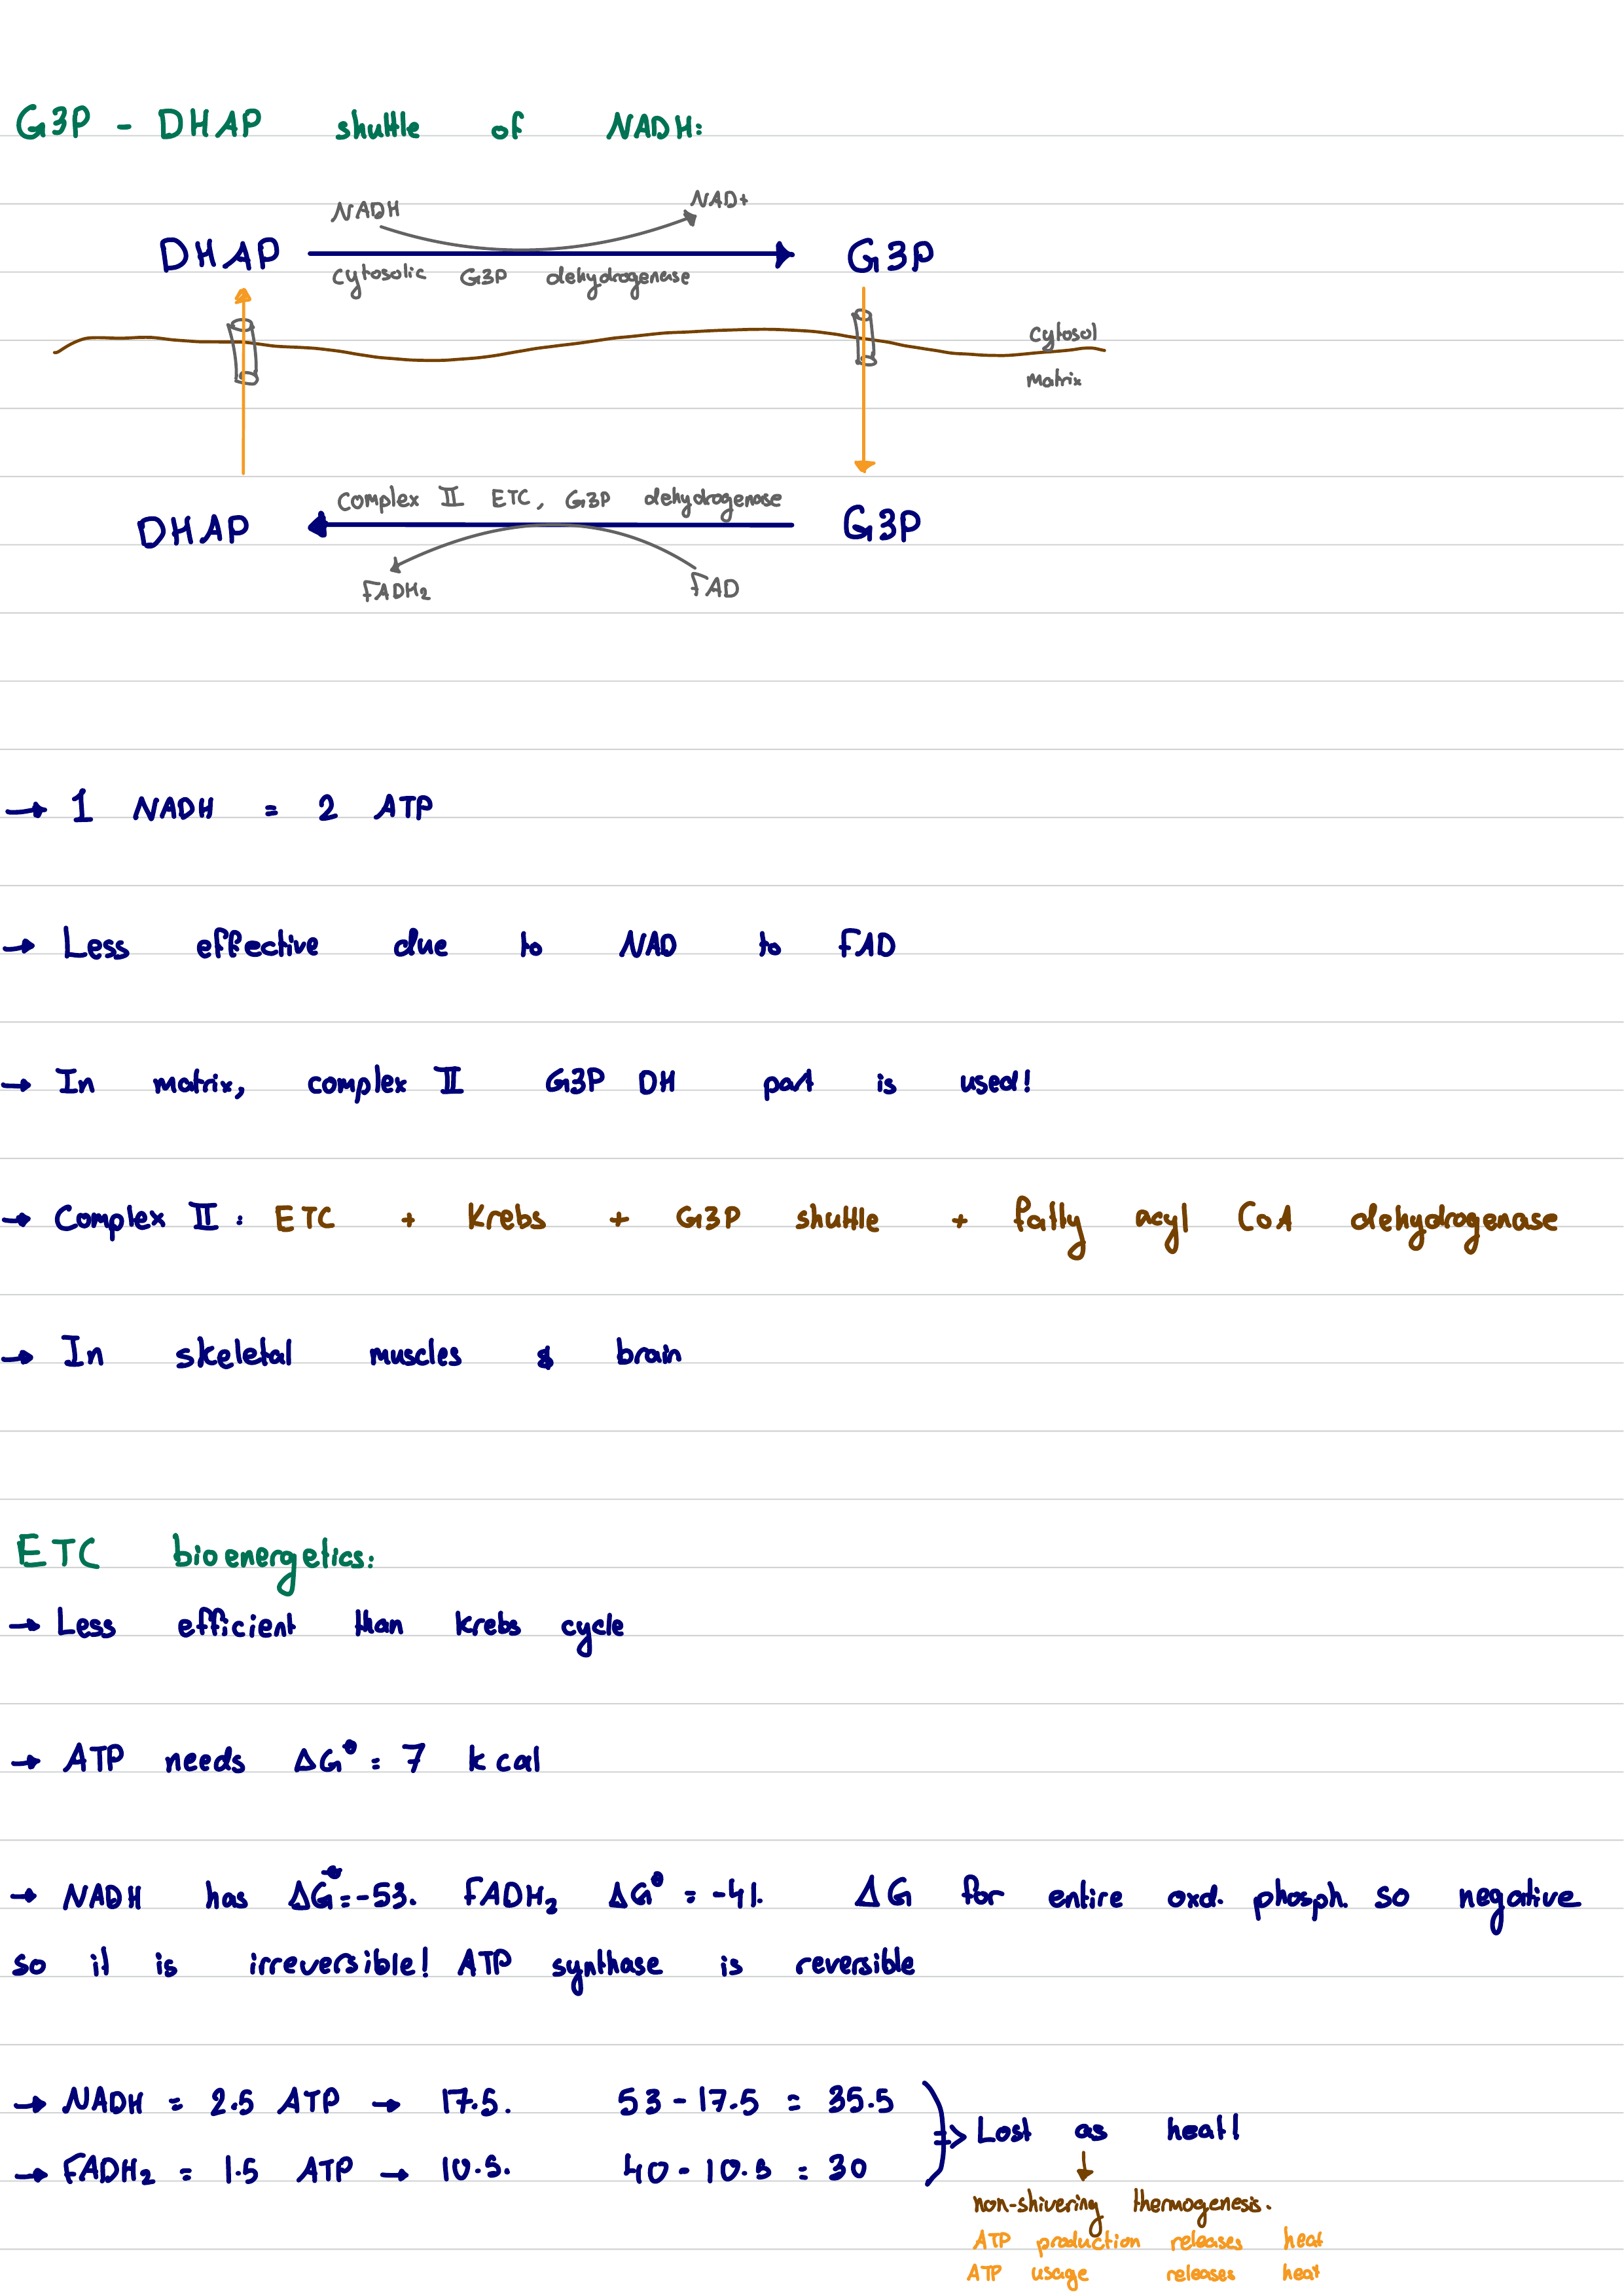 G3P - DHAP shuttle of NADH:
NADH NAD+
DHAP G3P
cytosolic G3P dehydrogenase
cytosol
matrix
complex II ETC, G3P dehydrogenase
DHAP G3P
FADH₂ FAD
→ 1 NADH = 2 ATP
→ Less effective due to NAD to FAD
→ In matrix, complex II G3P DH part is used!
→ Complex II: ETC + Krebs + G3P shuttle + fatty acyl CoA dehydrogenase
→ In skeletal muscles & brain
ETC bioenergetics:
→ Less efficient than Krebs cycle
→ ATP needs ΔG° = 7 kcal
→ NADH has ΔG° = -53. FADH₂ ΔG° = -41. ΔG for entire oxd. phosph. so negative
so it is irreversible! ATP synthase is reversible
→ NADH = 2.5 ATP → 17.5. 53 - 17.5 = 35.5
→ FADH₂ = 1.5 ATP → 10.5. 40 - 10.5 = 30
⇒ Lost as heat!
↓
non-shivering thermogenesis.
ATP production releases heat
ATP usage releases heat